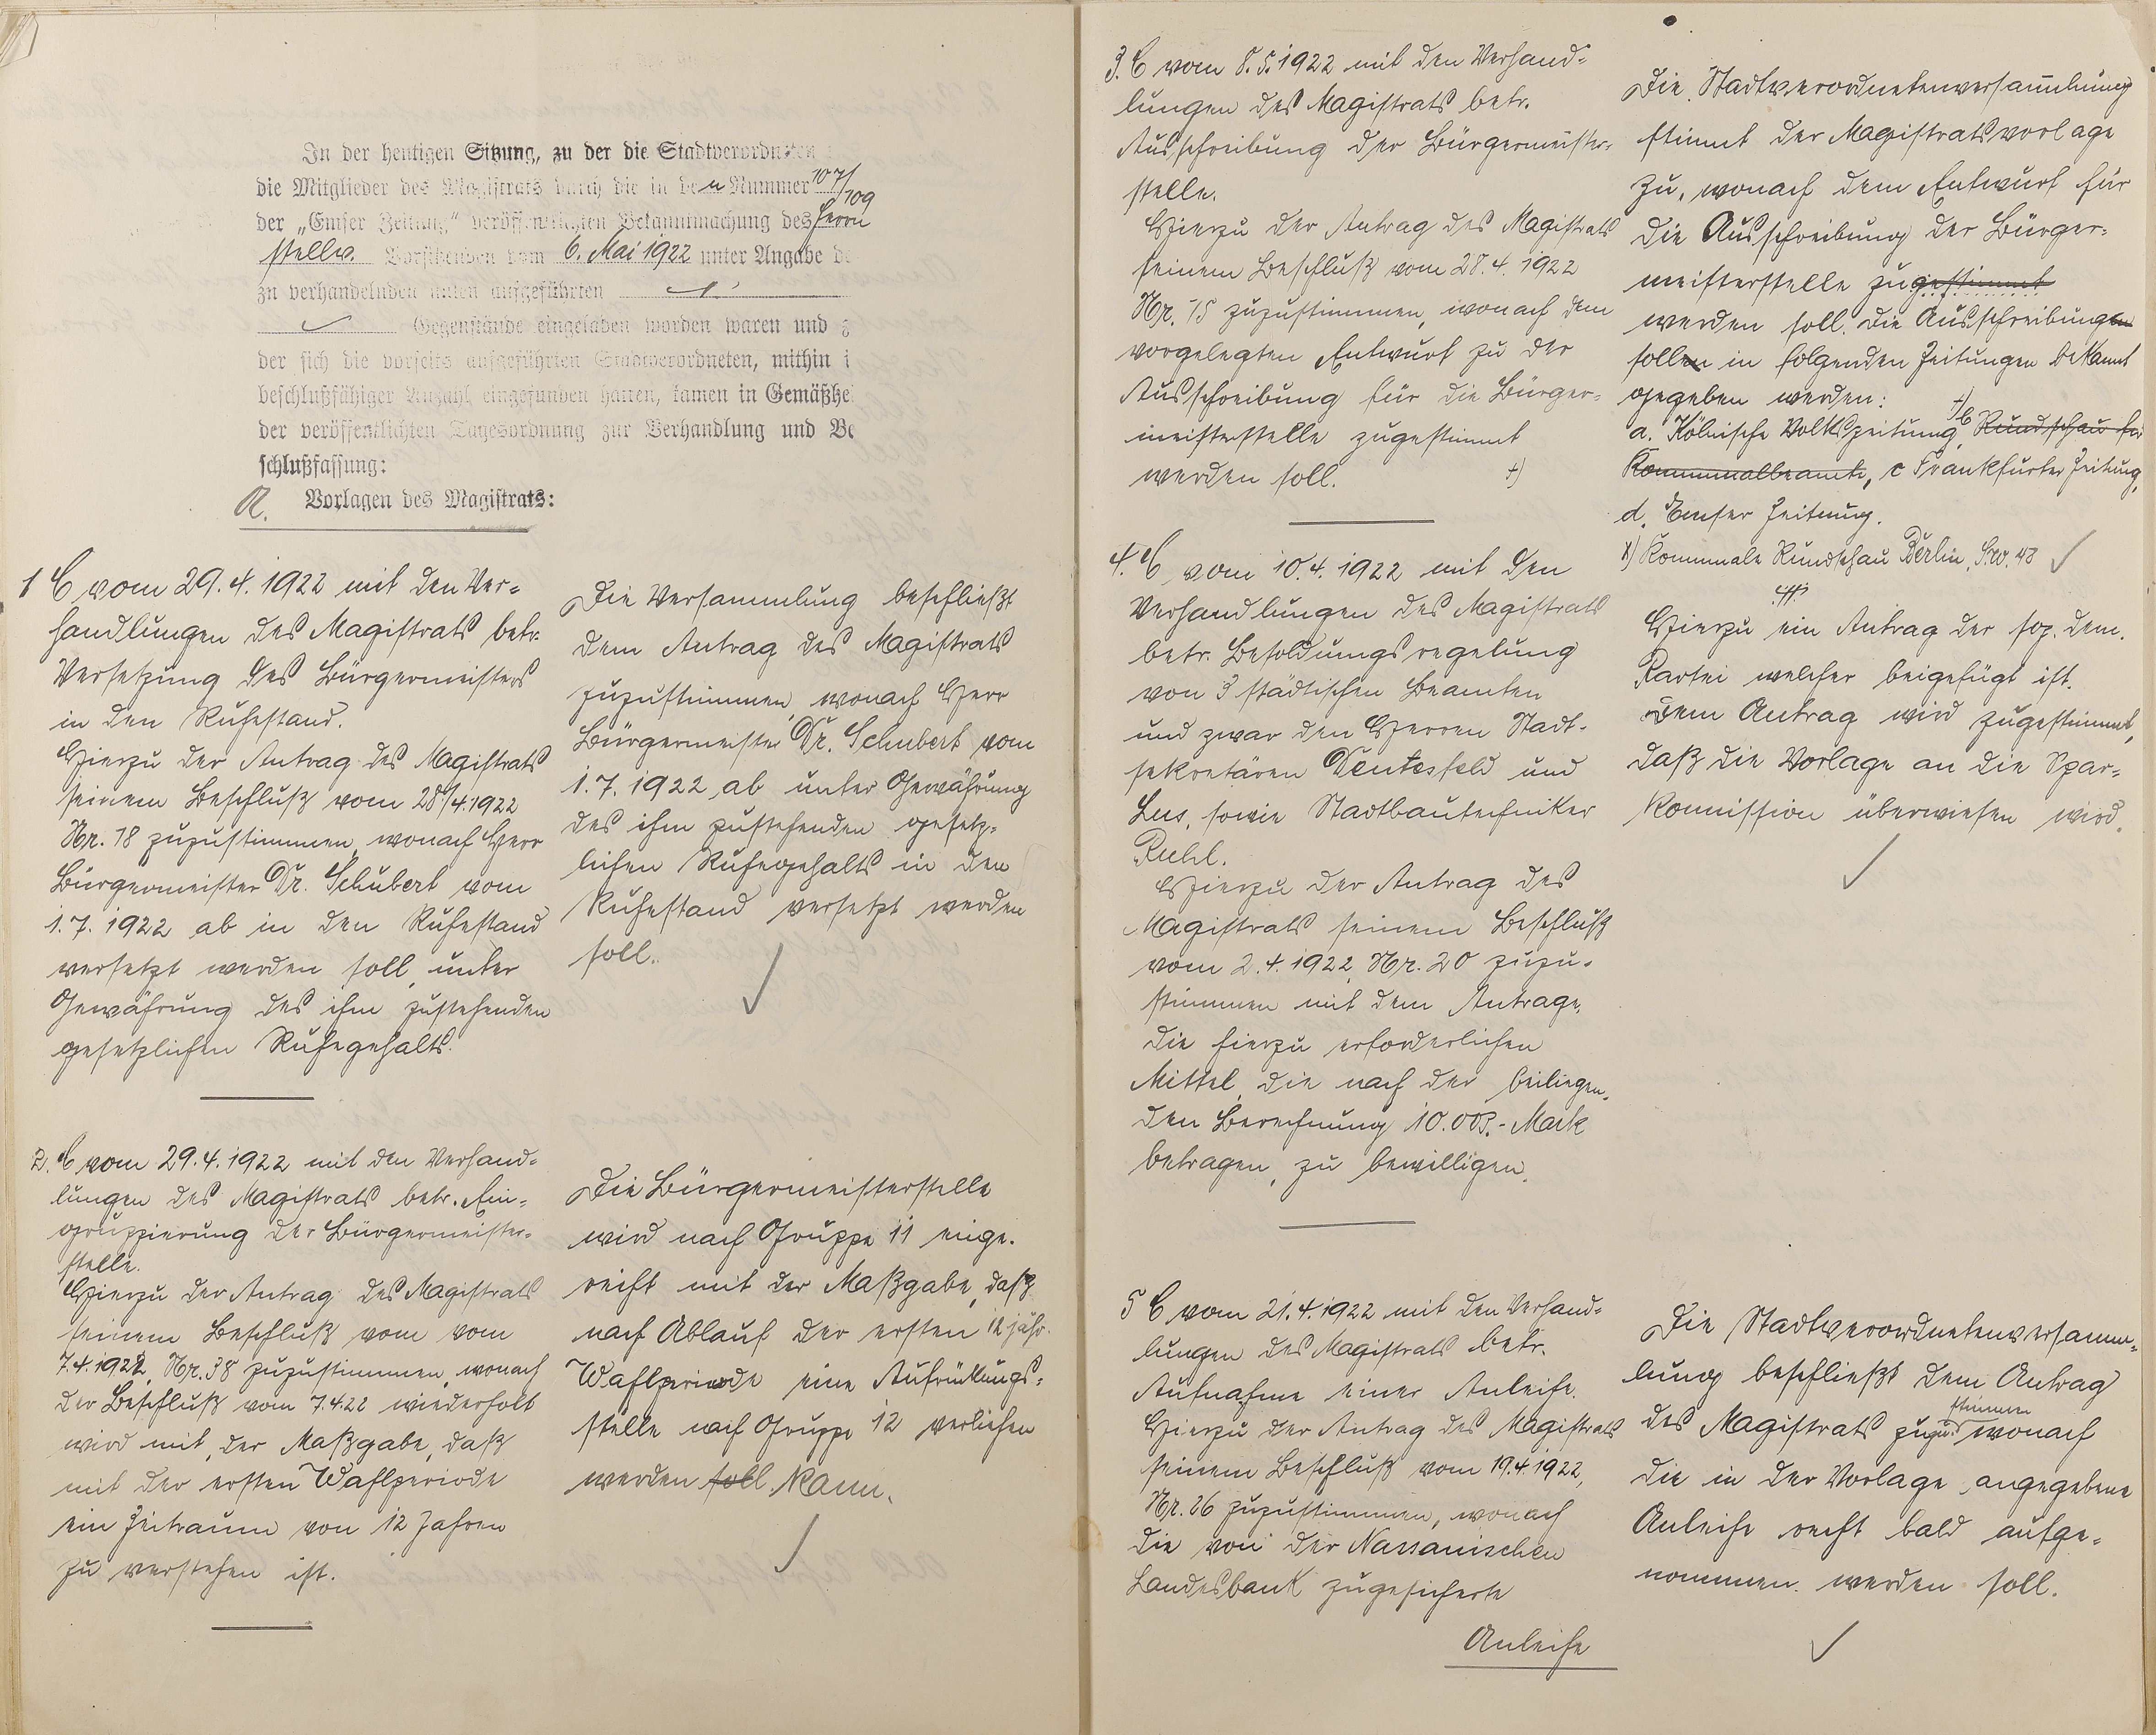 In der heutigen Sitzung, zu der die Stadtverordneten
die Mitglieder des Magistrats durch die in den Nummer 107/109
der „Emser Zeitung" veröffentlichten Bekanntmachung des Herrn
stellv. Vorsitzenden vom 6. Mai 1922 unter Angabe de
zu verhandelnden unten aufgeführten
Gegenstände eingeladen worden waren und z
der sich die vorseits aufgeführten Stadtverordneten, mithin i
beschlußfähiger Anzahl eingefunden hatten, kamen in Gemäßhe
der veröffentlichten Tagesordnung zur Verhandlung und Be
schlußfassung:
A. Vorlagen des Magistrats:
1 C vom 29.4.1922 mit den Ver-
handlungen des Magistrats betr.
Versetzung des Bürgermeisters
in den Ruhestand.
Hierzu der Antrag des Magistrats
seinem Beschluß vom 28/4.1922
Nr. 18 zuzustimmen, wonach Herr
Bürgermeister Dr. Schubert vom
1.7.1922 ab in den Ruhestand
versetzt werden soll, unter
Gewährung des ihm zustehenden
gesetzlichen Ruhegehalts.
Die Versammlung beschließt
dem Antrag des Magistrats
zuzustimmen, wonach Herr
Bürgermeister Dr. Schubert vom
1.7.1922 ab unter Gewährung
des ihm zustehenden gesetz-
lichen Ruhegehalts in den
Ruhestand versetzt werden
soll.
2. C vom 29.4.1922 mit den Verhand-
lungen des Magistrats betr. Ein-
gruppierung der Bürgermeister-
stelle.
Hierzu der Antrag des Magistrats
seinem Beschluß vom vom
7.4.1922, Nr. 38 zuzustimmen, wonach
der Beschluß vom 7.4.22 wiederholt
wird mit der Maßgabe, daß
mit der ersten Wahlperiode
ein Zeitraum von 12 Jahren
zu verstehen ist.
Die Bürgermeisterstelle
wird nach Gruppe 11 einge-
reiht mit der Maßgabe, daß
nach Ablauf der ersten 12 jähr.
Wahlperiode eine Aufrückungs-
stelle nach Gruppe 12 verliehen
werden soll kann.
3. C vom 8.5.1922 mit den Verhand-
lungen des Magistrats betr.
Ausschreibung der Bürgermeister-
stelle.
Hierzu der Antrag des Magistrats
seinem Beschluß vom 28.4.1922
Nr. 15 zuzustimmen, wonach dem
vorgelegten Entwurf zu der
Ausschreibung für die Bürger-
meisterstelle zugestimmt
werden soll. +)
Die Stadtverordnetenversammlung
stimmt der Magistratsvorlage
zu, wonach dem Entwurf für
die Ausschreibung der Bürger-
meisterstelle zugestimmt
werden soll. Die Ausschreibungen
sollen in folgenden Zeitungen bekannt
gegeben werden:
a. Kölnische Volkszeitung, +) b Rundschau für
Kommunalbeamte, c Frankfurter Zeitung,
d. Emser Zeitung.
x) Kommunale Rundschau Berlin, S.W. 48
4. C vom 10.4.1922 mit den
Verhandlungen des Magistrats
betr. Besoldungsregelung
von 3 städtischen Beamten
und zwar den Herren Stadt-
sekretären Dentesfeld und
Lus, sowie Stadtbautechniker
Ruhl.
Hierzu der Antrag des
Magistrats seinem Beschluß
vom 2.4.1922, Nr. 20 zuzu-
stimmen mit dem Antrage,
die hierzu erforderlichen
Mittel, die nach der beiliegen-
den Berechnung 10.005.- Mark
betragen, zu bewilligen.
Hierzu ein Antrag der soz. dem.
Partei welcher beigefügt ist.
Dem Antrag wird zugestimmt,
daß die Vorlage an die Spar-
kommission überwiesen wird.
5 C vom 21.4.1922 mit den Verhand-
lungen des Magistrats betr.
Aufnahme einer Anleihe.
Hierzu der Antrag des Magistrats
seinem Beschluß vom 19.4.1922,
Nr. 26 zuzustimmen, wonach
die von der Nassauischen
Landesbank zugesicherte
Anleihe
Die Stadtverordnetenversamm-
lung beschließt dem Antrag
des Magistrats zuzustimmen wonach
die in der Vorlage angegebene
Anleihe recht bald aufge-
nommen werden soll.